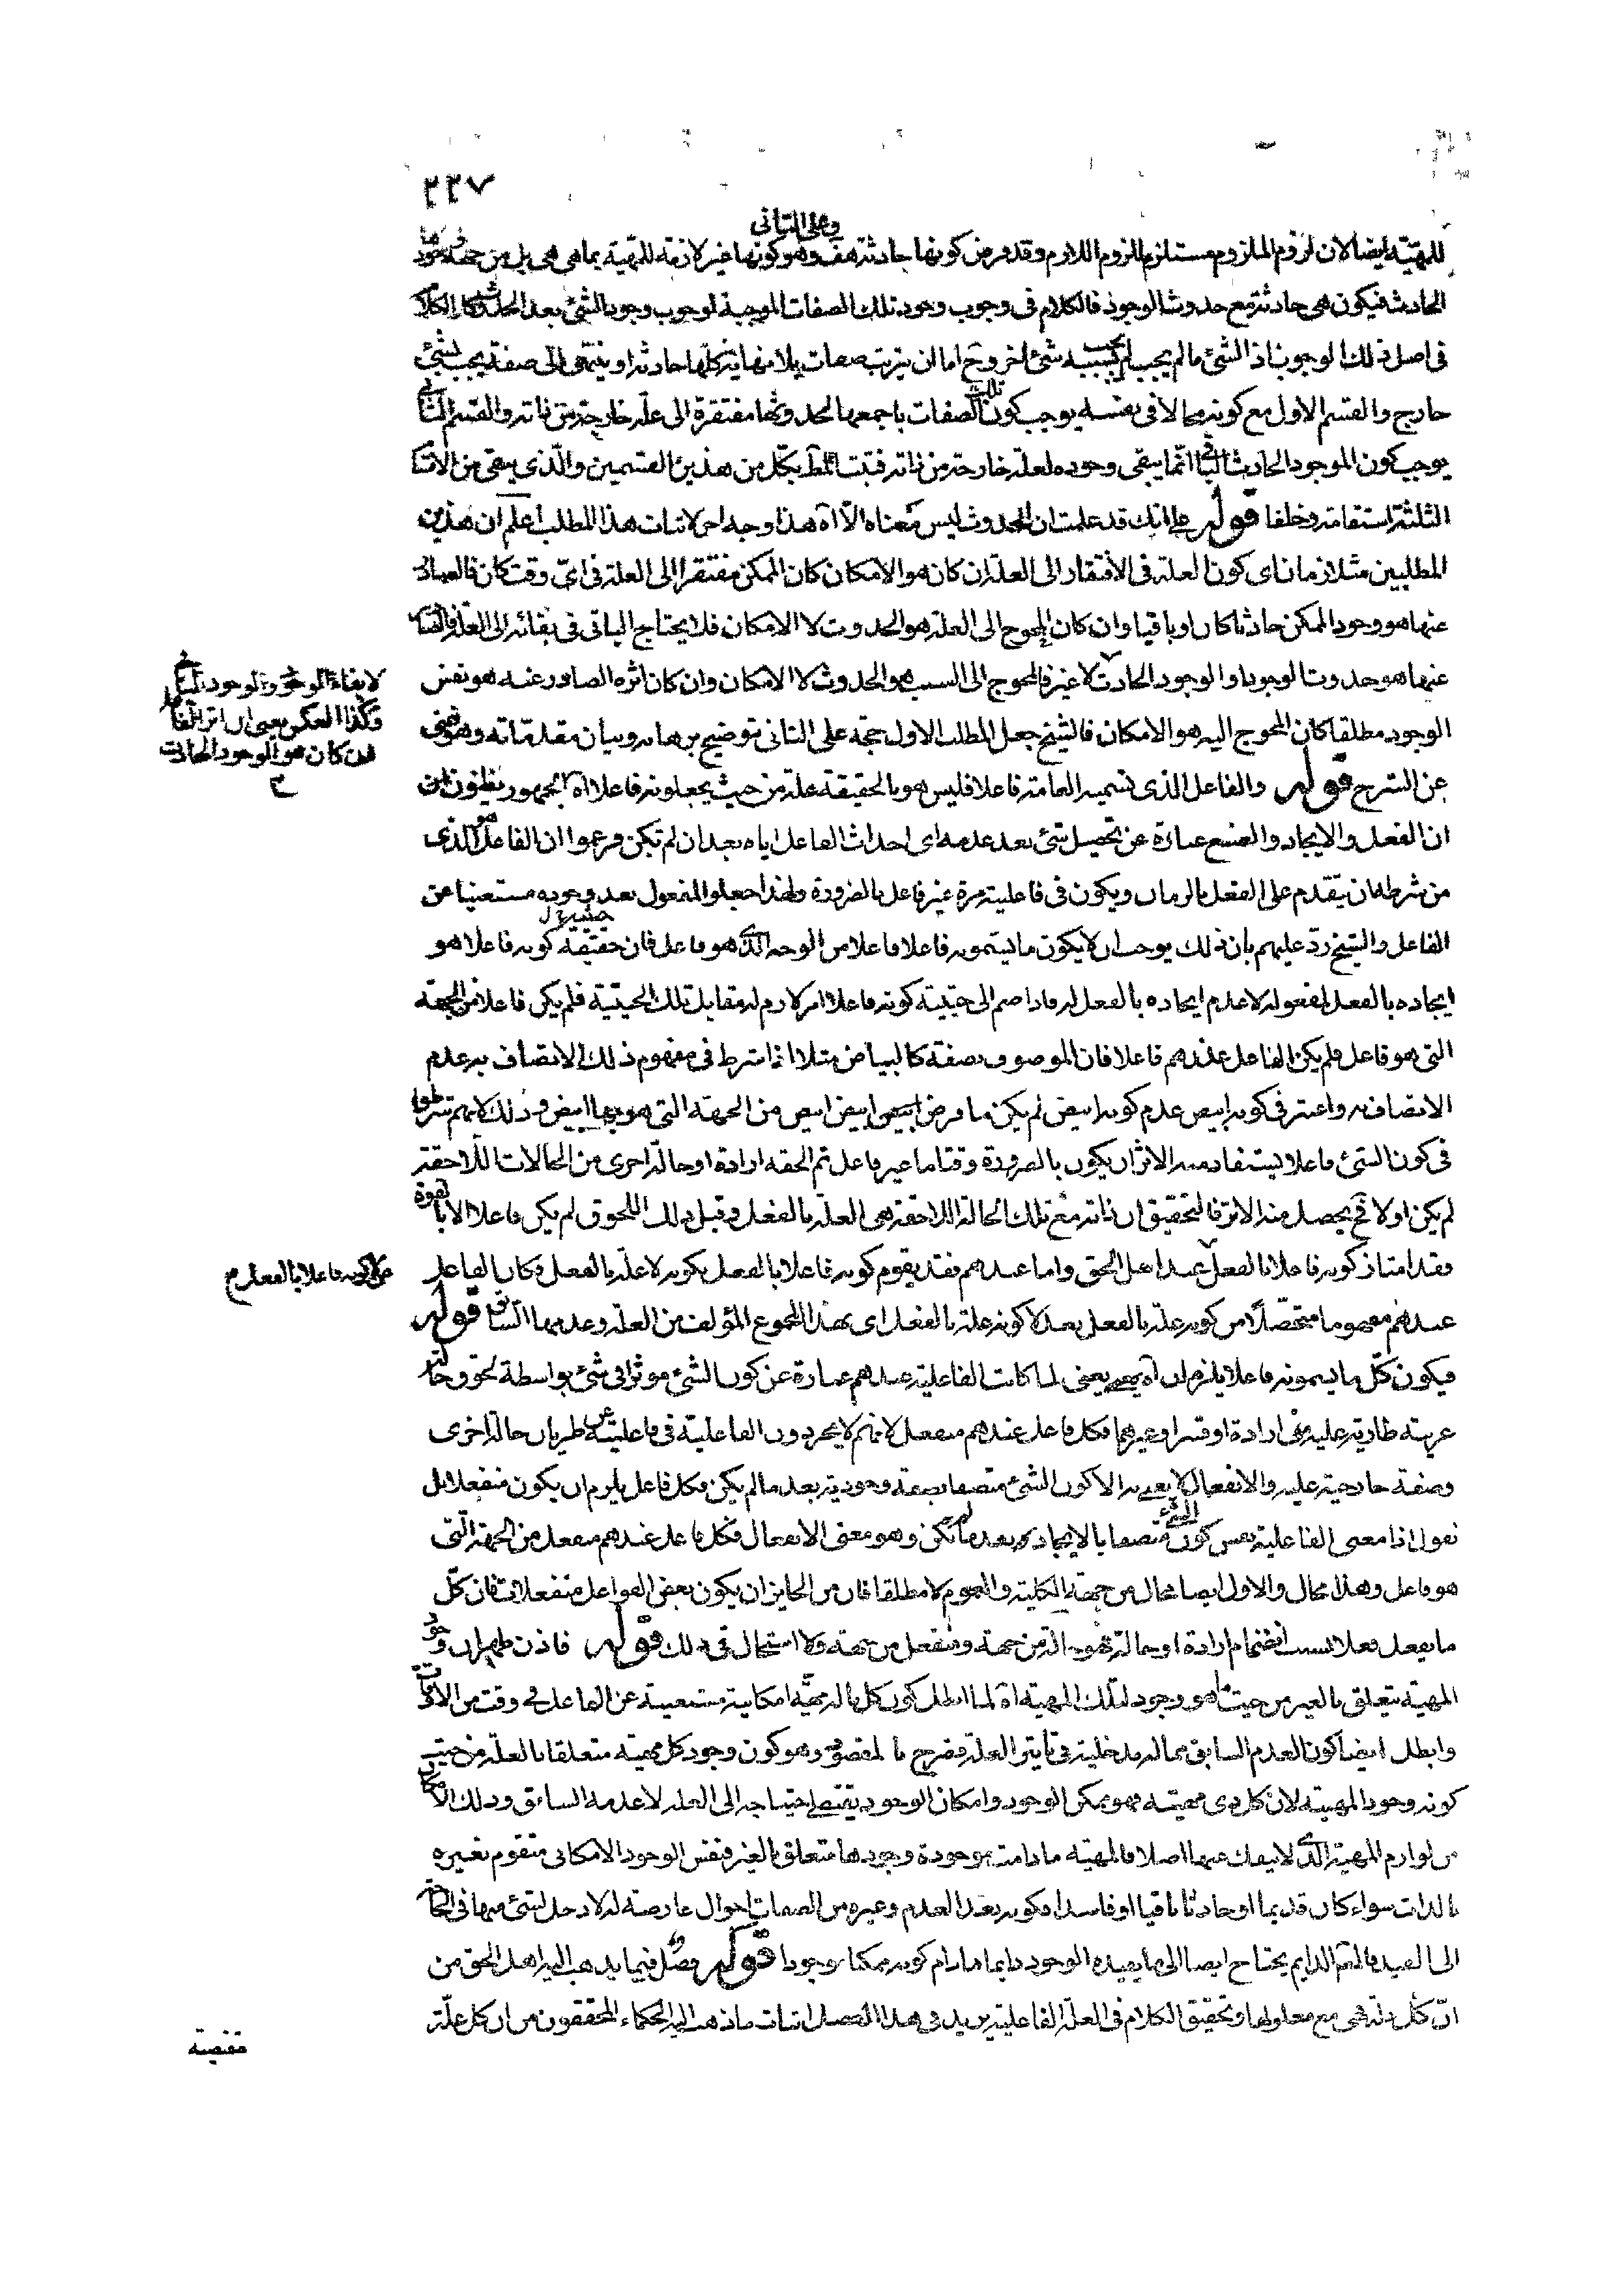 ٢٢٧
وعلى الثانى
للمهيّة ايضا لان لزوم الملزوم مستلزم للزوم اللازم وقد فرض كونها حادثة هف وهو كونها غير لازمة للمهيّة بما هى هى بل من جهة وجودها
الحادث فيكون هى حادثة مع حدوث الوجود فالكلام فى وجوب وجود تلك الصفات الموجبة لوجوب وجود الشئ بعد الحدوث كالكلام
فى اصل ذلك الوجوب اذ الشئ ما لم يجب لم يجب بسببه شئ اخر وح اما ان يترتب صفات بلا نهاية كلّها حادثة او ينتهى الى صفة يجب بشئ
خارج والقسم الاول مع كونه محالا فى نفسه يوجب كون تلك الصفات باجمعها لحدوثها مفتقرة الى علّة خارجة من ذاته والقسم الثانى
يوجب كون الموجود الحادث الباقى انّما يبقى وجوده لعلة خارجة من ذاته فثبت المط بكلّ من هذين القسمين والّذى يبقى من الاقسام
الثلثة استقامة وخلفا قوله على انك قد علمت ان الحدوث ليس معناه الّا اه هذا وجه اخر لاثبات هذا المطلب اعلم ان هذين
المطلبين متلازمان اى كون العلة فى الافتقار الى العلة ان كان هو الامكان كان الممكن مفتقرا الى العلة فى اىّ وقت كان فالصادر
عنها هو وجود الممكن حادثا كان او باقيا وان كان المحوج الى العلة هو الحدوث لا الامكان فلا يحتاج الباقى فى بقائه الى العلة فالصادر
عنها هو حدوث الوجود او الوجود الحادث لا غير فالمحوج الى السبب هو الحدوث لا الامكان وان كان اثره الصادر عنه هو نفس
لا بقاء الوجود والوجود الباقى
وكذا العكس يعنى ان اثر الفاعل
ان كان هو الوجود الحادث
م
الوجود مطلقا كان المحوج اليه هو الامكان فالشيخ جعل المطلب الاول حجة على الثانى توضيح برهانه وبيان مقدماته وهو غنى
عن الشرح قوله والفاعل الذى تسميه العامة فاعلا فليس هو بالحقيقة علة من حيث يجعلونه فاعلا اه الجمهور يظنون
ان الفعل والايجاد والصنع عبارة عن تحصيل شئ بعد عدمه اى احداث الفاعل اياه بعد ان لم تكن فزعموا ان الفاعل هو الذى
من شرطه ان يتقدم على الفعل بالزمان ويكون فى فاعليته مرة غير فاعل بالضرورة ولهذا جعلوا المفعول بعد وجوده مستغنيا عن
الفاعل والشيخ ردّ عليهم بان ذلك يوجب ان لا يكون ما يسمونه فاعلا فاعلا من الوجه الذى هو فاعل فان حقيقة كونه فاعلا هو
ايجاده بالفعل لمفعوله لا عدم ايجاده بالفعل له فاذا ضم الى حيثية كونه فاعلا امر لازم له مقابل تلك الحيثية فلم يكن فاعلا من الجهة
التى هو فاعل فلم يكن الفاعل عندهم فاعلا فان الموصوف بصفة كالبياض مثلا اذا شرط فى مفهوم ذلك الاتصاف به عدم
الاتصاف به واعتبر فى كونه ابيض عدم كونه ابيض لم يكن ما فرض ابيض ابيض من الجهة التى هو بها ابيض وذلك لانهم شرطوا
فى كون الشئ فاعلا يستفاد منه الاثر ان يكون بالضرورة وقتا ما غير فاعل ثم الحقه ارادة او حالة اخرى من الحالات اللاحقة
لم يكن اولا فح يحصل منه الاثر فالتحقيق ان ذاته مع تلك الحالة اللاحقة هى العلة بالفعل وقبل ذلك اللحوق لم يكن فاعلا الا بالقوة
فقد امتاز كونه فاعلا بالفعل عند اهل الحق واما عندهم فقد يقوم كونه فاعلا بالفعل بكونه لا علّة بالفعل فكان الفاعل
من لا كونه فاعلا بالفعل م
عندهم مفهوما متحصّلا من كونه علة بالفعل بعد لا كونه علة بالفعل اى بهذا المجموع المؤلف من العلة وعدمها السابق قوله
فيكون كلّ ما يسمونه فاعلا يلزم ان اه يعنى لما كانت الفاعلية عندهم عبارة عن كون الشئ موثرا فى شئ بواسطة لحوق حالة
غريبة طارية عليه من ارادة او قسر او غيرهما فكل فاعل عندهم منفعل لانهم لا يجردون الفاعلية فى فاعليته عن طريان حالة اخرى
وصفة خارجية عليه والانفعال لا يعنى به الا كون الشئ متصفا بصفة وجودية بعد ما لم يكن فكل فاعل يلزم ان يكون منفعلا بل
نقول اذا معنى الفاعلية نفس كون الشئ متصفا بالايجاد بعد ما لم تكن وهو معنى الانفعال فكل فاعل عندهم منفعل من الجهة التى
هو فاعل وهذا محال والاول ايضا محال من جهة الكلية والعموم لا مطلقا فان من الجايز ان يكون بعض الفواعل منفعلات فان كلّ
ما يفعل فعلا بسبب انضمام ارادة او حالة فهو من جهة ومنفعل من جهة ولا استحال فى ذلك قوله فاذن ظهر ان وجود
المهية يتعلق بالغير من حيث هو وجود لتلك المهية اه لما ابطل كون كل ماله مهيّة امكانية مستغنية عن الفاعل فى وقت من الاوقات
وابطل ايضا كون العدم السابق مما له مدخلية فى تاثير العلة فصرح بالمقصود وهو كون وجود كل مهية متعلقا بالعلة من حيث
كونه وجود المهية لان كل ذى مهية فهو ممكن الوجود وامكان الوجود يقتضى احتياجه الى العلة لا عدمه السابق وذلك الامكان
من لوازم المهية الذى لا ينفك عنها اصلا فالمهية ما دامت موجودة وجودها متعلق بالغير فنفس الوجود الامكانى متقوم بغيره
بالذات سواء كان قديما او حادثا باقيا او فاسدا وكونه بعد العدم وغيره من الصفات احوال عارضة له لا دخل لشئ منها فى الحاجة
الى المفيد فالدايم يحتاج ايضا الى ما يفيده الوجود دايما ما دام كونه ممكنا موجودا قوله فصل فيما يذهب اليه اهل الحق من
انّ كل علة هى مع معلولها وتحقيق الكلام فى العلة الفاعلية يريد فى هذا الفصل اثبات ما ذهب اليه الحكماء المحققون من ان كل علّة
مقتضية